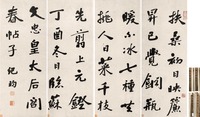 扶桑初日映簾
昇已覺銅瓶
暖不冰七種
共挑人日菜千枝
先剪上元鐙
丁酉冬日臨蘇
文忠皇太后閣
春帖子 紀昀